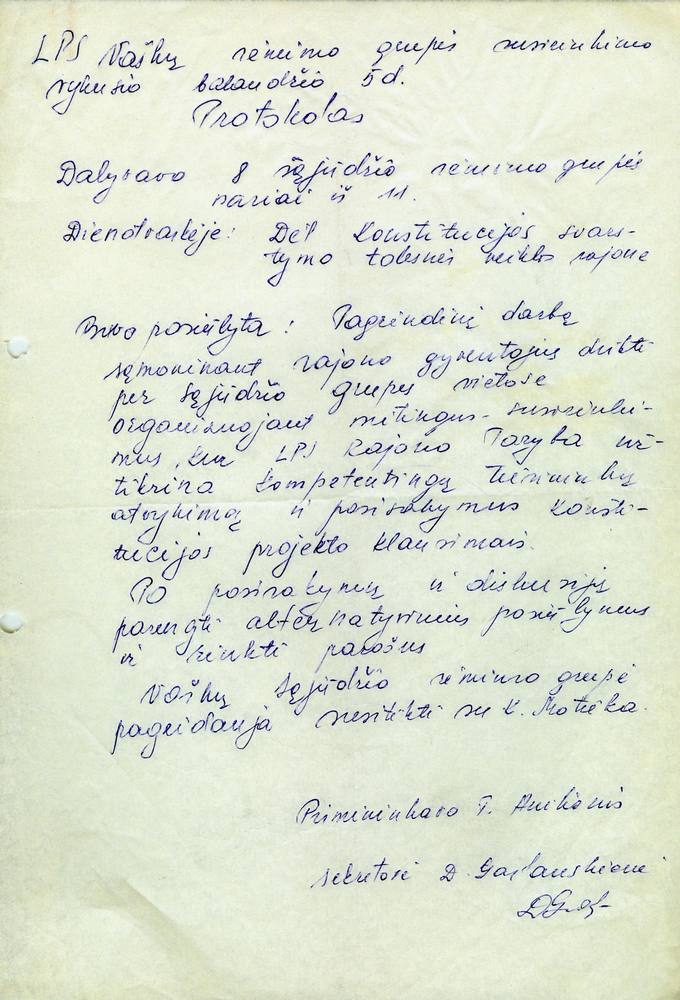 LPS Vaškų rėmimo grupės susirinkimo
vykusio balandžio 5 d.
Protokolas
Dalyvavo 8 sąjūdžio rėmimo grupės
nariai iš 11.
Dienotvarkėje: Dėl Konstitucijos svars-
tymo tolesnės veiklos rajone
Buvo pasiūlyta: Pagrindinį darbą
sąmoninant rajono gyventojus dirbti
per Sąjūdžio grupes vietose
organizuojant mitingus-susirinki-
mus, kur LPS Rajono Taryba už-
tikrina kompetentingų žmonių
atvykimą ir pasisakymus Konsti-
tucijos projekto klausimais.
Po pasisakymų ir diskusijų
parengti alternatyvinius pasiūlymus
ir rinkti parašus
Vaškų Sąjūdžio rėmimo grupė
pageidauja susitikti su K. Motieka.
Pirmininkavo T.
sekretorė D.